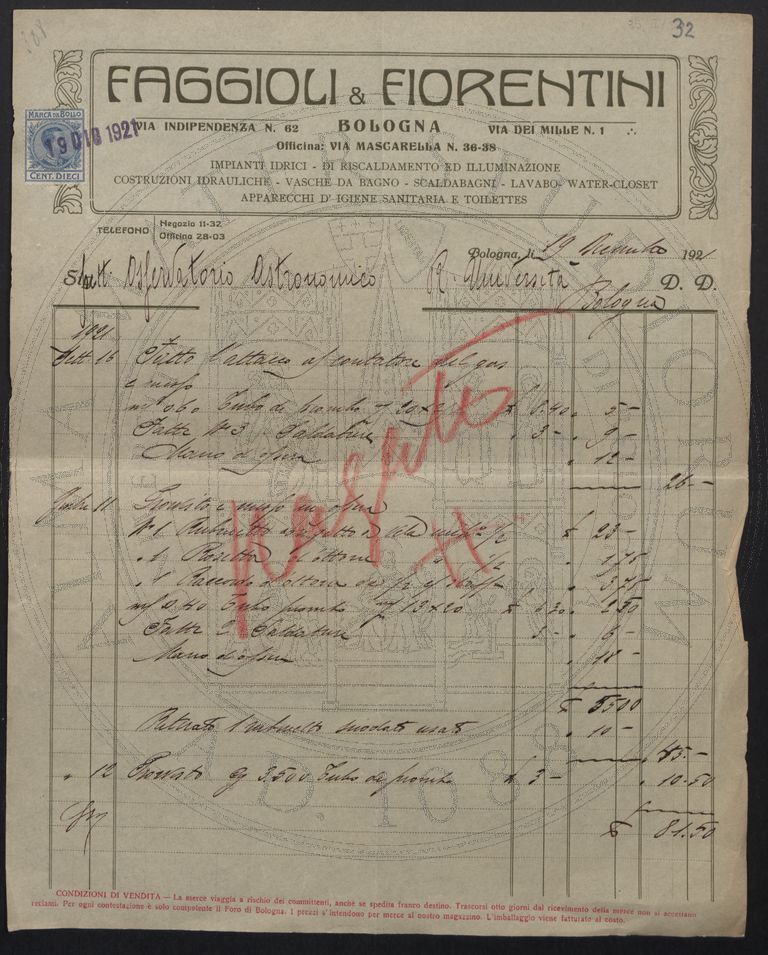 32
FAGGIOLI & FIORENTINI
MARCA DA BOLLO
CENT. DIECI
19 DIC 1921
VIA INDIPENDENZA N. 62 BOLOGNA VIA DEI MILLE N. 1
Officina: VIA MASCARELLA N. 36-38
IMPIANTI IDRICI - DI RISCALDAMENTO ED ILLUMINAZIONE
COSTRUZIONI IDRAULICHE - VASCHE DA BAGNO - SCALDABAGNI - LAVABO- WATER-CLOSET
APPARECCHI D' IGIENE SANITARIA E TOILETTES
TELEFONO Negozio 11-32
Officina 28-03
Bologna, li 19 Dicembre 1921
Osservatorio Astronomico R. Università D. D.
Bologna
1921
Sett 16 Fatto l'attacco al contatore del gas
e messo
Tubo di piombo 5-
Fatte N° 3 Saldature 3- 9-
Mano d'opera 12-
26-
11 Provvisto e messo in opera
N° 1 Rubinetto 1/2 23-
1 Rosetta d'ottone 1/2 1,75
1 Raccordo d'ottone da 1/2 3,75
0.40 Tubo piombo 13x20 2,50
Fatte 2 Saldature 6-
Mano d'opera 18-
5500
Ritirato 1 rubinetto snodato usato 10-
45.-
12 Provvisto 3.500 Tubo di piombo 3- 10.50
81.50
Pagato
CONDIZIONI DI VENDITA — La merce viaggia a rischio dei committenti, anche se spedita franco destino. Trascorsi otto giorni dal ricevimento della merce non si accettano
reclami. Per ogni contestazione è solo competente il Foro di Bologna. I prezzi s'intendono per merce al nostro magazzino. L'imballaggio viene fatturato al costo.